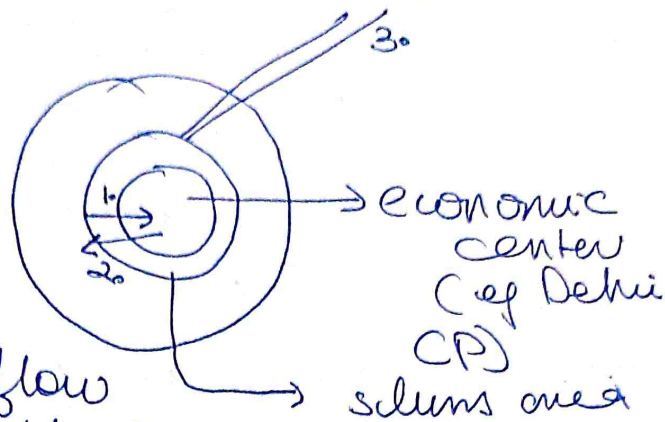 3.
1.
→ economic
center
(eg Delhi
CP)
2.
flow
slums area